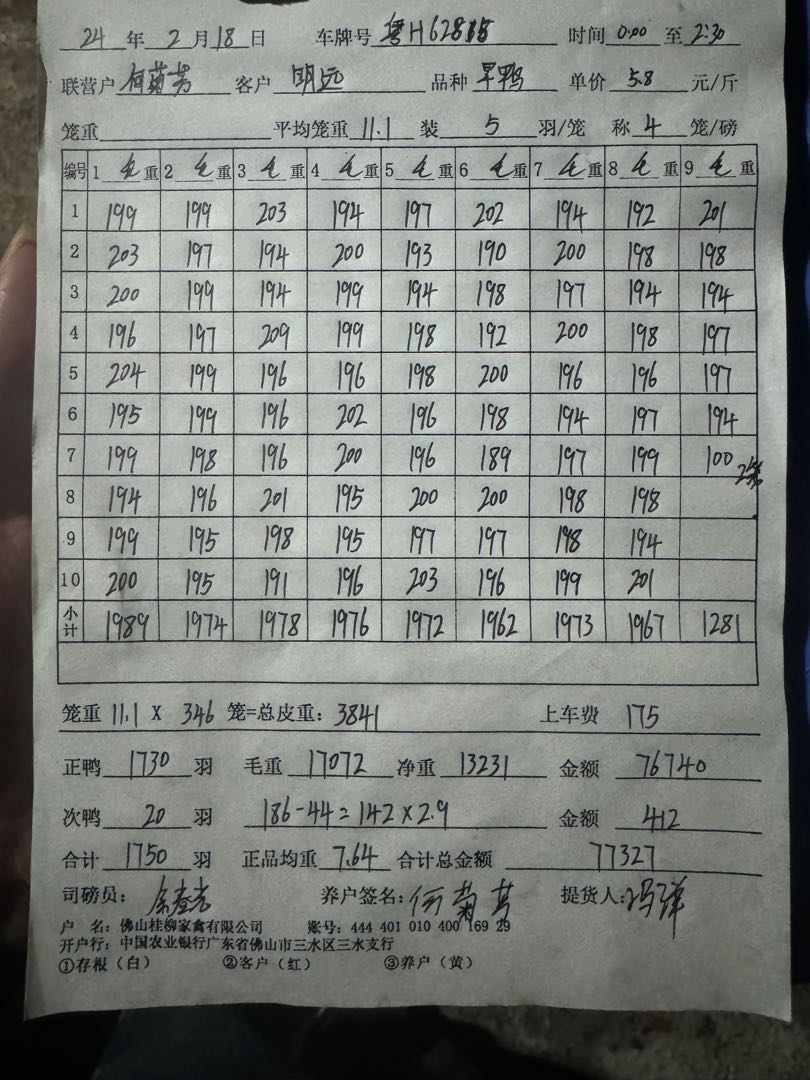 24 年 2 月 18 日 车牌号 粤H62815 时间 0:00 至 2:30
联营户 何菊芳 客户 明远 品种 旱鸭 单价 5.8 元/斤
笼重 平均笼重 11.1 装 5 羽/笼 称 4 笼/磅
编号 1 毛 重 2 毛 重 3 毛 重 4 毛 重 5 毛 重 6 毛 重 7 毛 重 8 毛 重 9 毛 重
1 199 199 203 194 197 202 194 192 201
2 203 197 194 200 193 190 200 198 198
3 200 199 194 199 194 198 197 194 194
4 196 197 209 199 198 192 200 198 197
5 204 199 196 196 198 200 196 196 197
6 195 199 196 202 196 198 194 197 194
7 199 198 196 200 196 189 197 199 100 2笼
8 194 196 201 195 200 200 198 198
9 199 195 198 195 197 197 198 194
10 200 195 191 196 203 196 199 201
小计 1989 1974 1978 1976 1972 1962 1973 1967 1281
笼重 11.1 X 346 笼=总皮重: 3841 上车费 175
正鸭 1730 羽 毛重 17072 净重 13231 金额 76740
次鸭 20 羽 186-44=142×2.9 金额 412
合计 1750 羽 正品均重 7.64 合计总金额 77327
司磅员: 养户签名: 何菊芳 提货人:
户 名: 佛山桂柳家禽有限公司 账号: 444 401 010 400 169 29
开户行: 中国农业银行广东省佛山市三水区三水支行
①存根(白) ②客户(红) ③养户(黄)